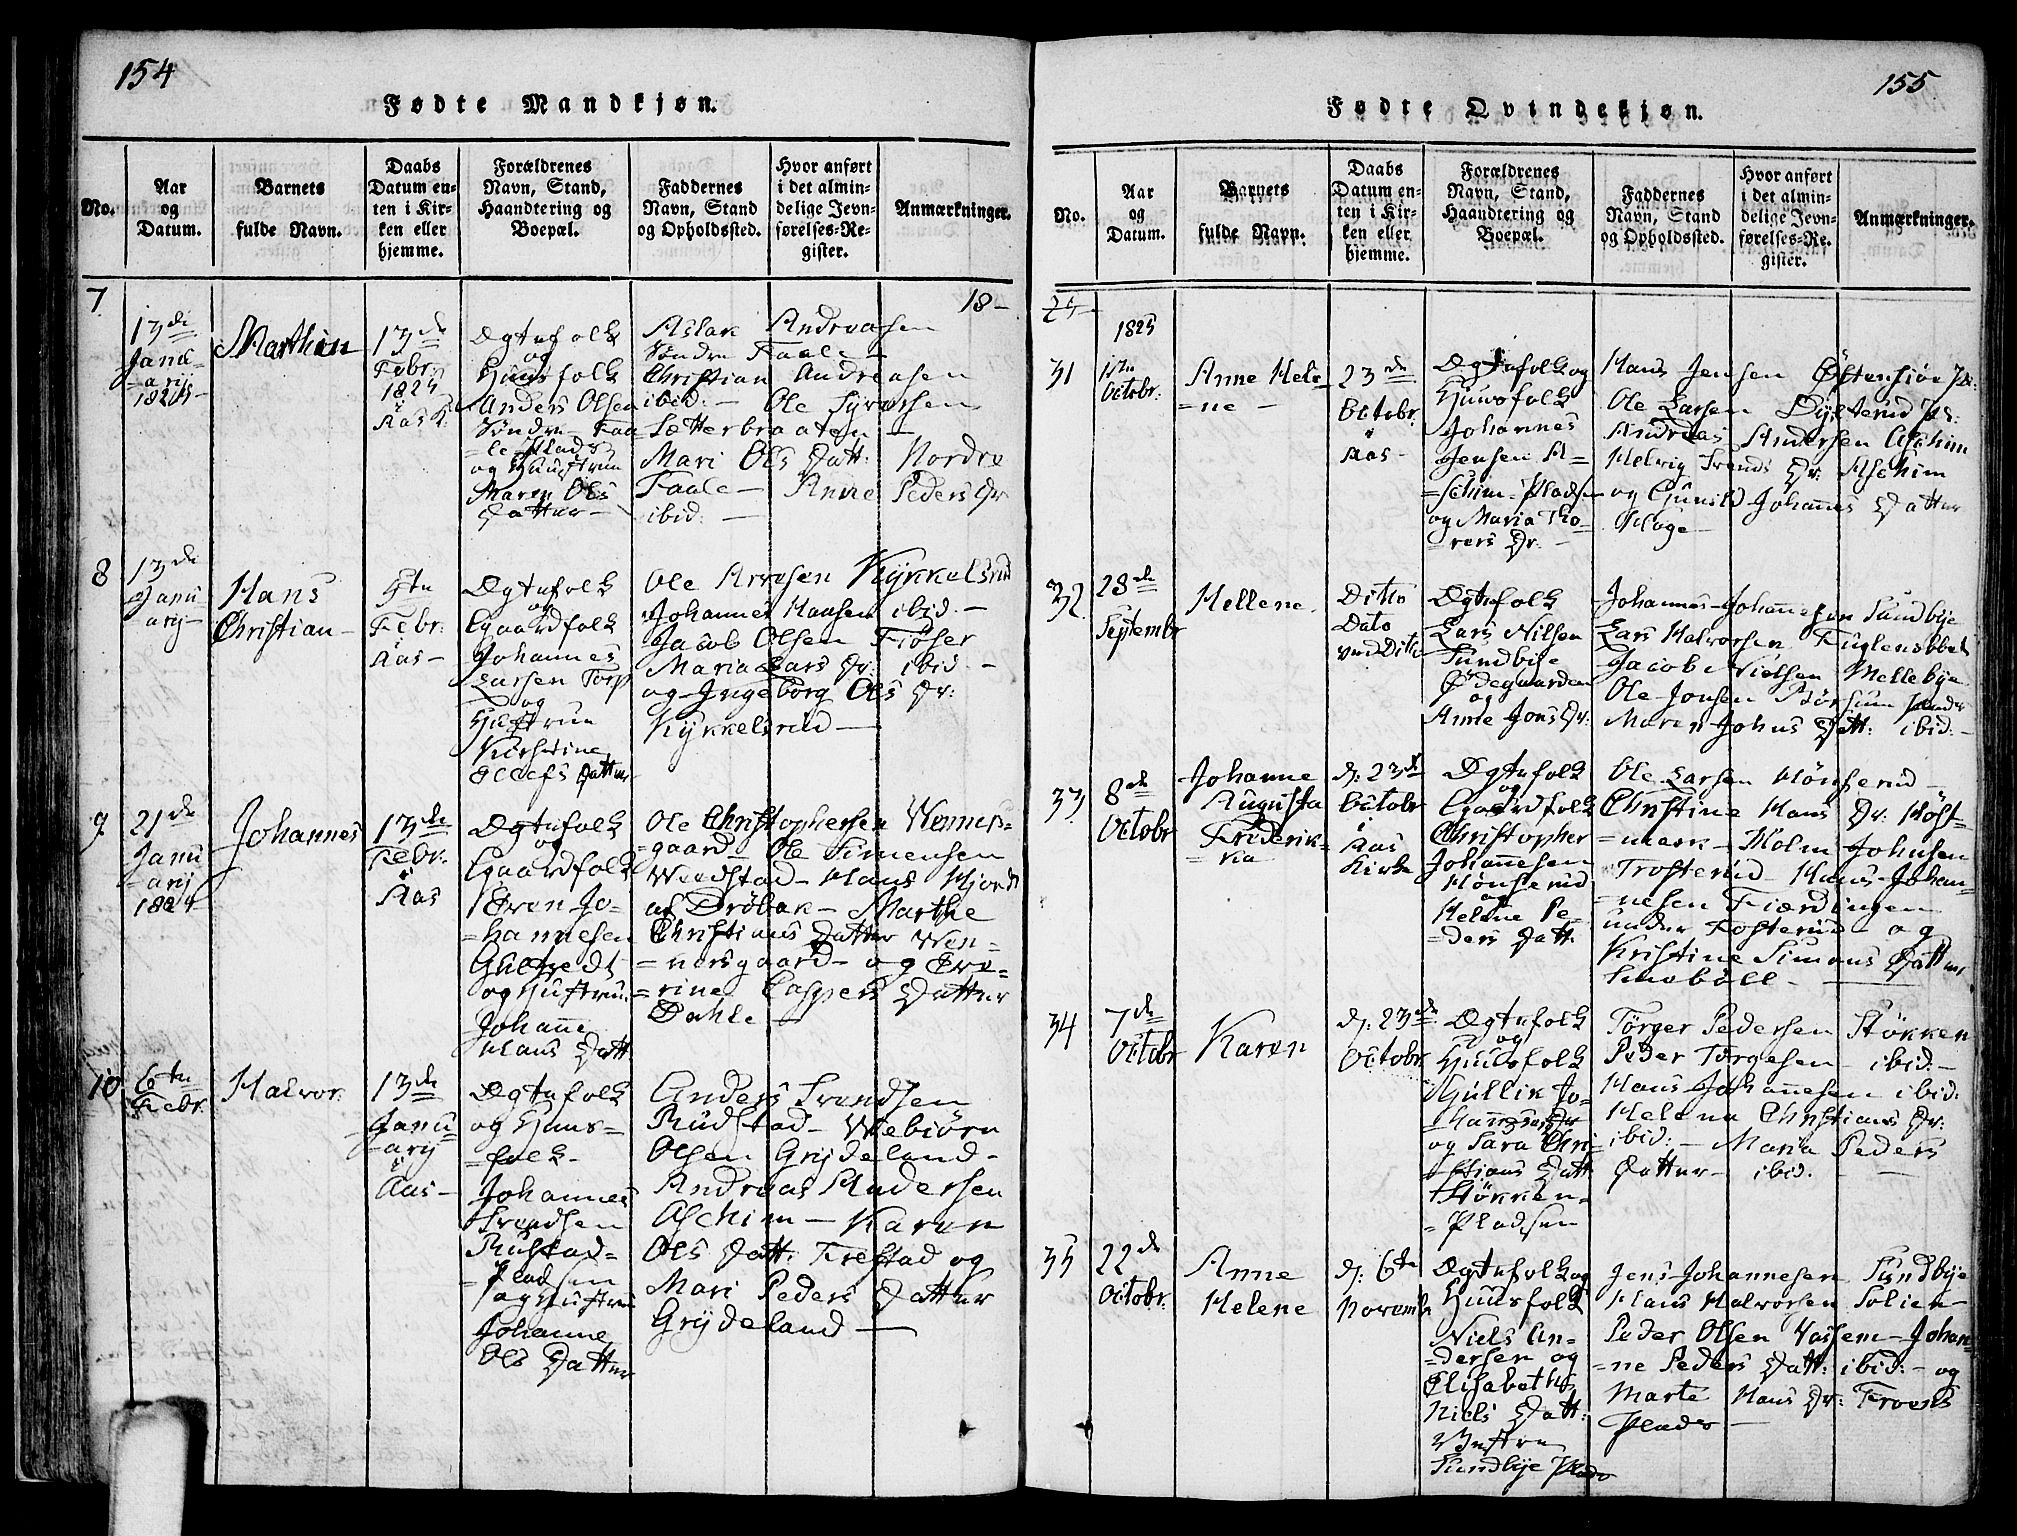 154
Fødte Mandkjøn.
No.
Aar
og
Datum.
Barnets
fulde Navn.
Daabs
Datum en-
ten i Kir-
ken eller
hjemme.
Forældrenes
Navn, Stand,
Haandtering og
Boepæl.
Faddernes
Navn, Stand
og Opholdssted.
Hvor anført
i det almin-
delige Jevn-
førelses-Re-
gister.
Anmærkninger.
18-
7
13de
Janu-
-arij
Marthin
13de
Febr:
1825
i
Aas K:
Ægtefolk
og
Huusfolk
Anders Olsen
Søndre Faa-
-le Plads
og Hustrue
Maren Ols
Datter-
Aslak Andreasen
Søndre Faale-
Christian Andreasen
ibid:- Ole Syversen
Sætterbraaten-
Mari Ols Datt: Nordre
Faale- Anne Peders Dr
ibid:-
8
13de
Janu-
arij-
Hans
Christian-
Febr:
Aas-
Ægtefolk
og
Gaardfolk
Johannes
Larsen Torp
og
Hustrue
Kirstine
Datter
Ole Arvesen Kykkelsrud
Johannes Hansen ibid:-
Jacob Olsen Fløser
Maria Lars Dr: ibid:-
og Ingeborg Ols Dr:
Kykkelsrud-
9
21de
Janu
-arij
Johannes
13de
Febr:
i
Aas
Ægtefolk
og
Gaardfolk
Even Jo-
-hannesen
og Hustrue
Johanne
Hans Datt
Ole Christophersen Wennes-
gaard- Ole Simensen
Weedstad- Hans Hjorth
af Drøbak- Marthe
Christians Datter Wen-
-nersgaard- og Eve-
-rine Caspers Datter
Dahle-
10
6te
Febr.
Halvor.
13de
Janu-
-arij
i
Aas-
Ægtefolk
og Huus-
-folk-
Johannes
Svendsen
Rustad-
-Pladsen
og Hustrue
Johanne
Ols Datter
Anders Svendsen
Rudstad- Webiørn
Olsen Grydeland-
Andreas Andersen
Aschim- Karen
Ols Datt: Frestad og
Mari Peders Datter
Grydeland-
155
Fødte Qvindekjøn.
No.
Aar
og
Datum.
Barnets
fulde Navn.
Daabs
Datum en-
ten i Kir-
ken eller
hjemme.
Forældrenes
Navn, Stand,
Haandtering og
Boepæl.
Faddernes
Navn, Stand
og Opholdssted.
Hvor anført
i det almin-
delige Jevn-
førelses-Re-
gister.
Anmærkninger.
1825
31
Octobr:
Anne Hele-
-ne-
23de
Octobr
i
Aas-
Ægtefolk og
Huusfolk
Johannes
Jensen A-
-schim-Pladsen
og Maria Tho-
-rers Dr:-
Hans Jensen Østensiøe
Ole Larsen
Andreas Andersen Aschim
Helvig Svends Dr: Aschim
og Gunild Johannes Datter
32
28de
Septembr
Hellene
Ditto
Dato
Ægtefolk
Lars Nilsen
Sundbye
Ødegaarden
og
Anne Jons Dr:
Johannes Johannesen Sundbye
Lars Halvorsen
Jacob Nielsen Mellebye
Ole Jonsen
Maren Johns Datt: ibid:-
33
8de
Octobr
Johanne
Augusta
Friderik-
-kia
d: 23de
Octobr
i
Aas
Kirke
Ægtefolk
og
Gaardfolk
Christopher
Johannesen
Hønserud
og
Helene Pe-
-ders Datt.
Ole Larsen Hønserud-
Christine Hans Dr: Høst-
-mark- Holm Johnsen
Trosterud- Hans Johan-
-nesen Fiærdingen
under Fosterud- og
Kristine Simons Datter
34
7de
Octobr
Karen
d: 23de
Octobr
Ægtefolk
og
Huusfolk
Gullik Jo-
og Sara Chri-
-stians Datt
Støkken-
-Pladsen
Tørger Pedersen Støkken
Peder Torgesen ibid:-
Hans Johannesen ibid:
Helena Christians Dr:
ibid:- Maria Peders
Datter- ibid.-
35
22de
Octobr:
Anne
Helene
d: 6te
Novemb
Ægtefolk og
Huusfolk
Niels An-
-dersen og
Elisabeth
Niels Datt:
Sundbye Plads
Jens Johannesen Sundbye
Hans Halvorsen Solien-
Peder Olsen Hassem- Johan-
-ne Peders Datt: ibid:- og
Marte Hans Dr:
Plads-